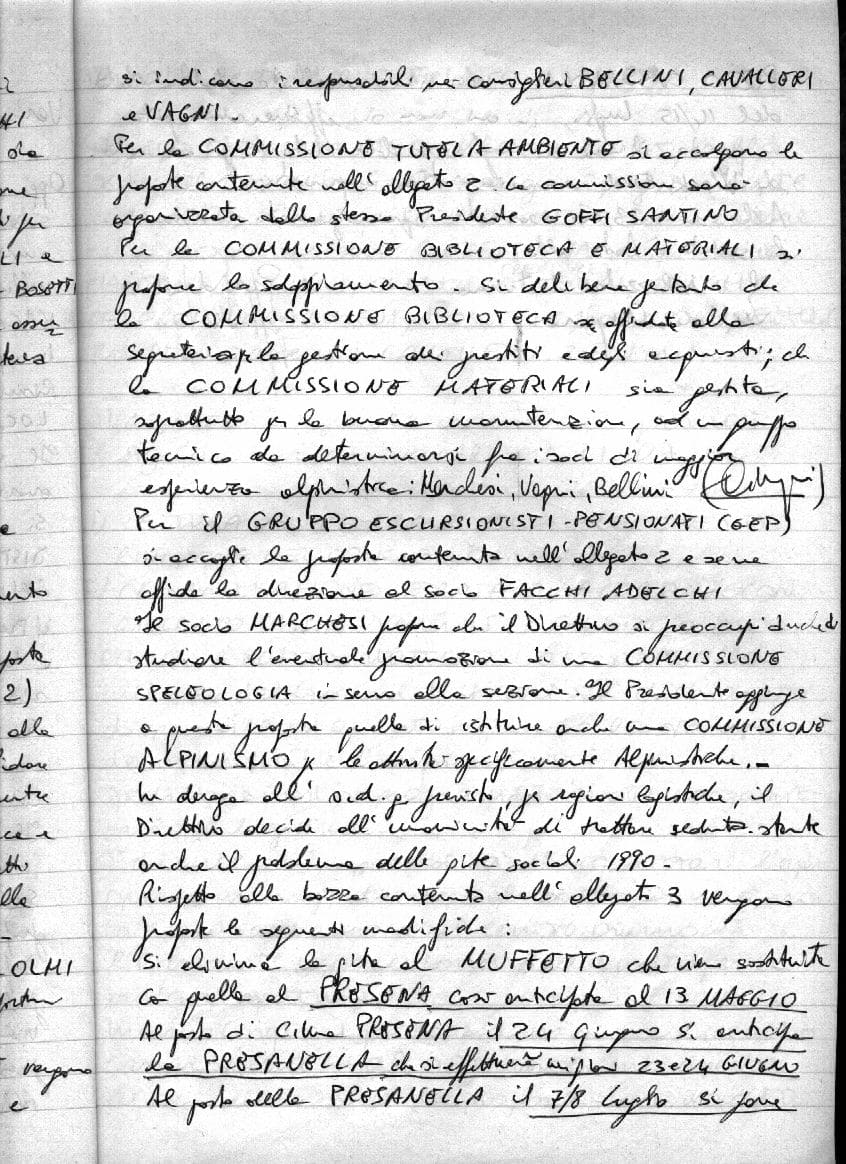 si indicano i responsabili nei Consiglieri BELLINI, CAVALLERI
e VAGNI.
Per la COMMISSIONE TUTELA AMBIENTE si accolgono le
proposte contenute nell'allegato 2 la commissione sarà
organizzata dallo stesso Presidente GOFFI SANTINO
Per la COMMISSIONE BIBLIOTECA E MATERIALI si
propone lo sdoppiamento. Si delibera pertanto che
la COMMISSIONE BIBLIOTECA sia affidata alla
segreteria x la gestione dei prestiti e degli acquisti; che
la COMMISSIONE MATERIALI sia gestita,
soprattutto per la buona manutenzione, ad un gruppo
tecnico da determinarsi fra i soci di maggior
esperienza alpinistica: Marchesi, Vagni, Bellini
Per il GRUPPO ESCURSIONISTI-PENSIONATI (GEP)
si accoglie la proposta contenuta nell'allegato 2 e se ne
affida la direzione al socio FACCHI ADELCHI
Il socio MARCHESI propone che il Direttivo si preoccupi anche di
studiare l'eventuale promozione di una COMMISSIONE
SPELEOLOGIA in seno alla sezione. Il Presidente aggiunge
a questa proposta quella di istituire anche una COMMISSIONE
ALPINISMO x le attività specificamente Alpinistiche.-
In deroga all'o.d.g previsto, per ragioni logistiche, il
Direttivo decide all'unanimità di trattare seduta stante
anche il problema delle gite sociali 1990-
Rispetto alla bozza contenuta nell'allegato 3 vengono
proposte le seguenti modifiche:
Si elimina la gita al MUFFETTO che viene sostituita
con quella al PRESENA così anticipata al 13 MAGGIO
Al posto di Cima PRESENA il 24 giugno si anticipa
la PRESANELLA che si effettuerà nei giorni 23 e 24 GIUGNO
Al posto della PRESANELLA il 7/8 luglio si pone
HI
che
per
LI e
BOSETTI
posta
2)
alla
ce e
tto
lla
OLMI
vengono
e